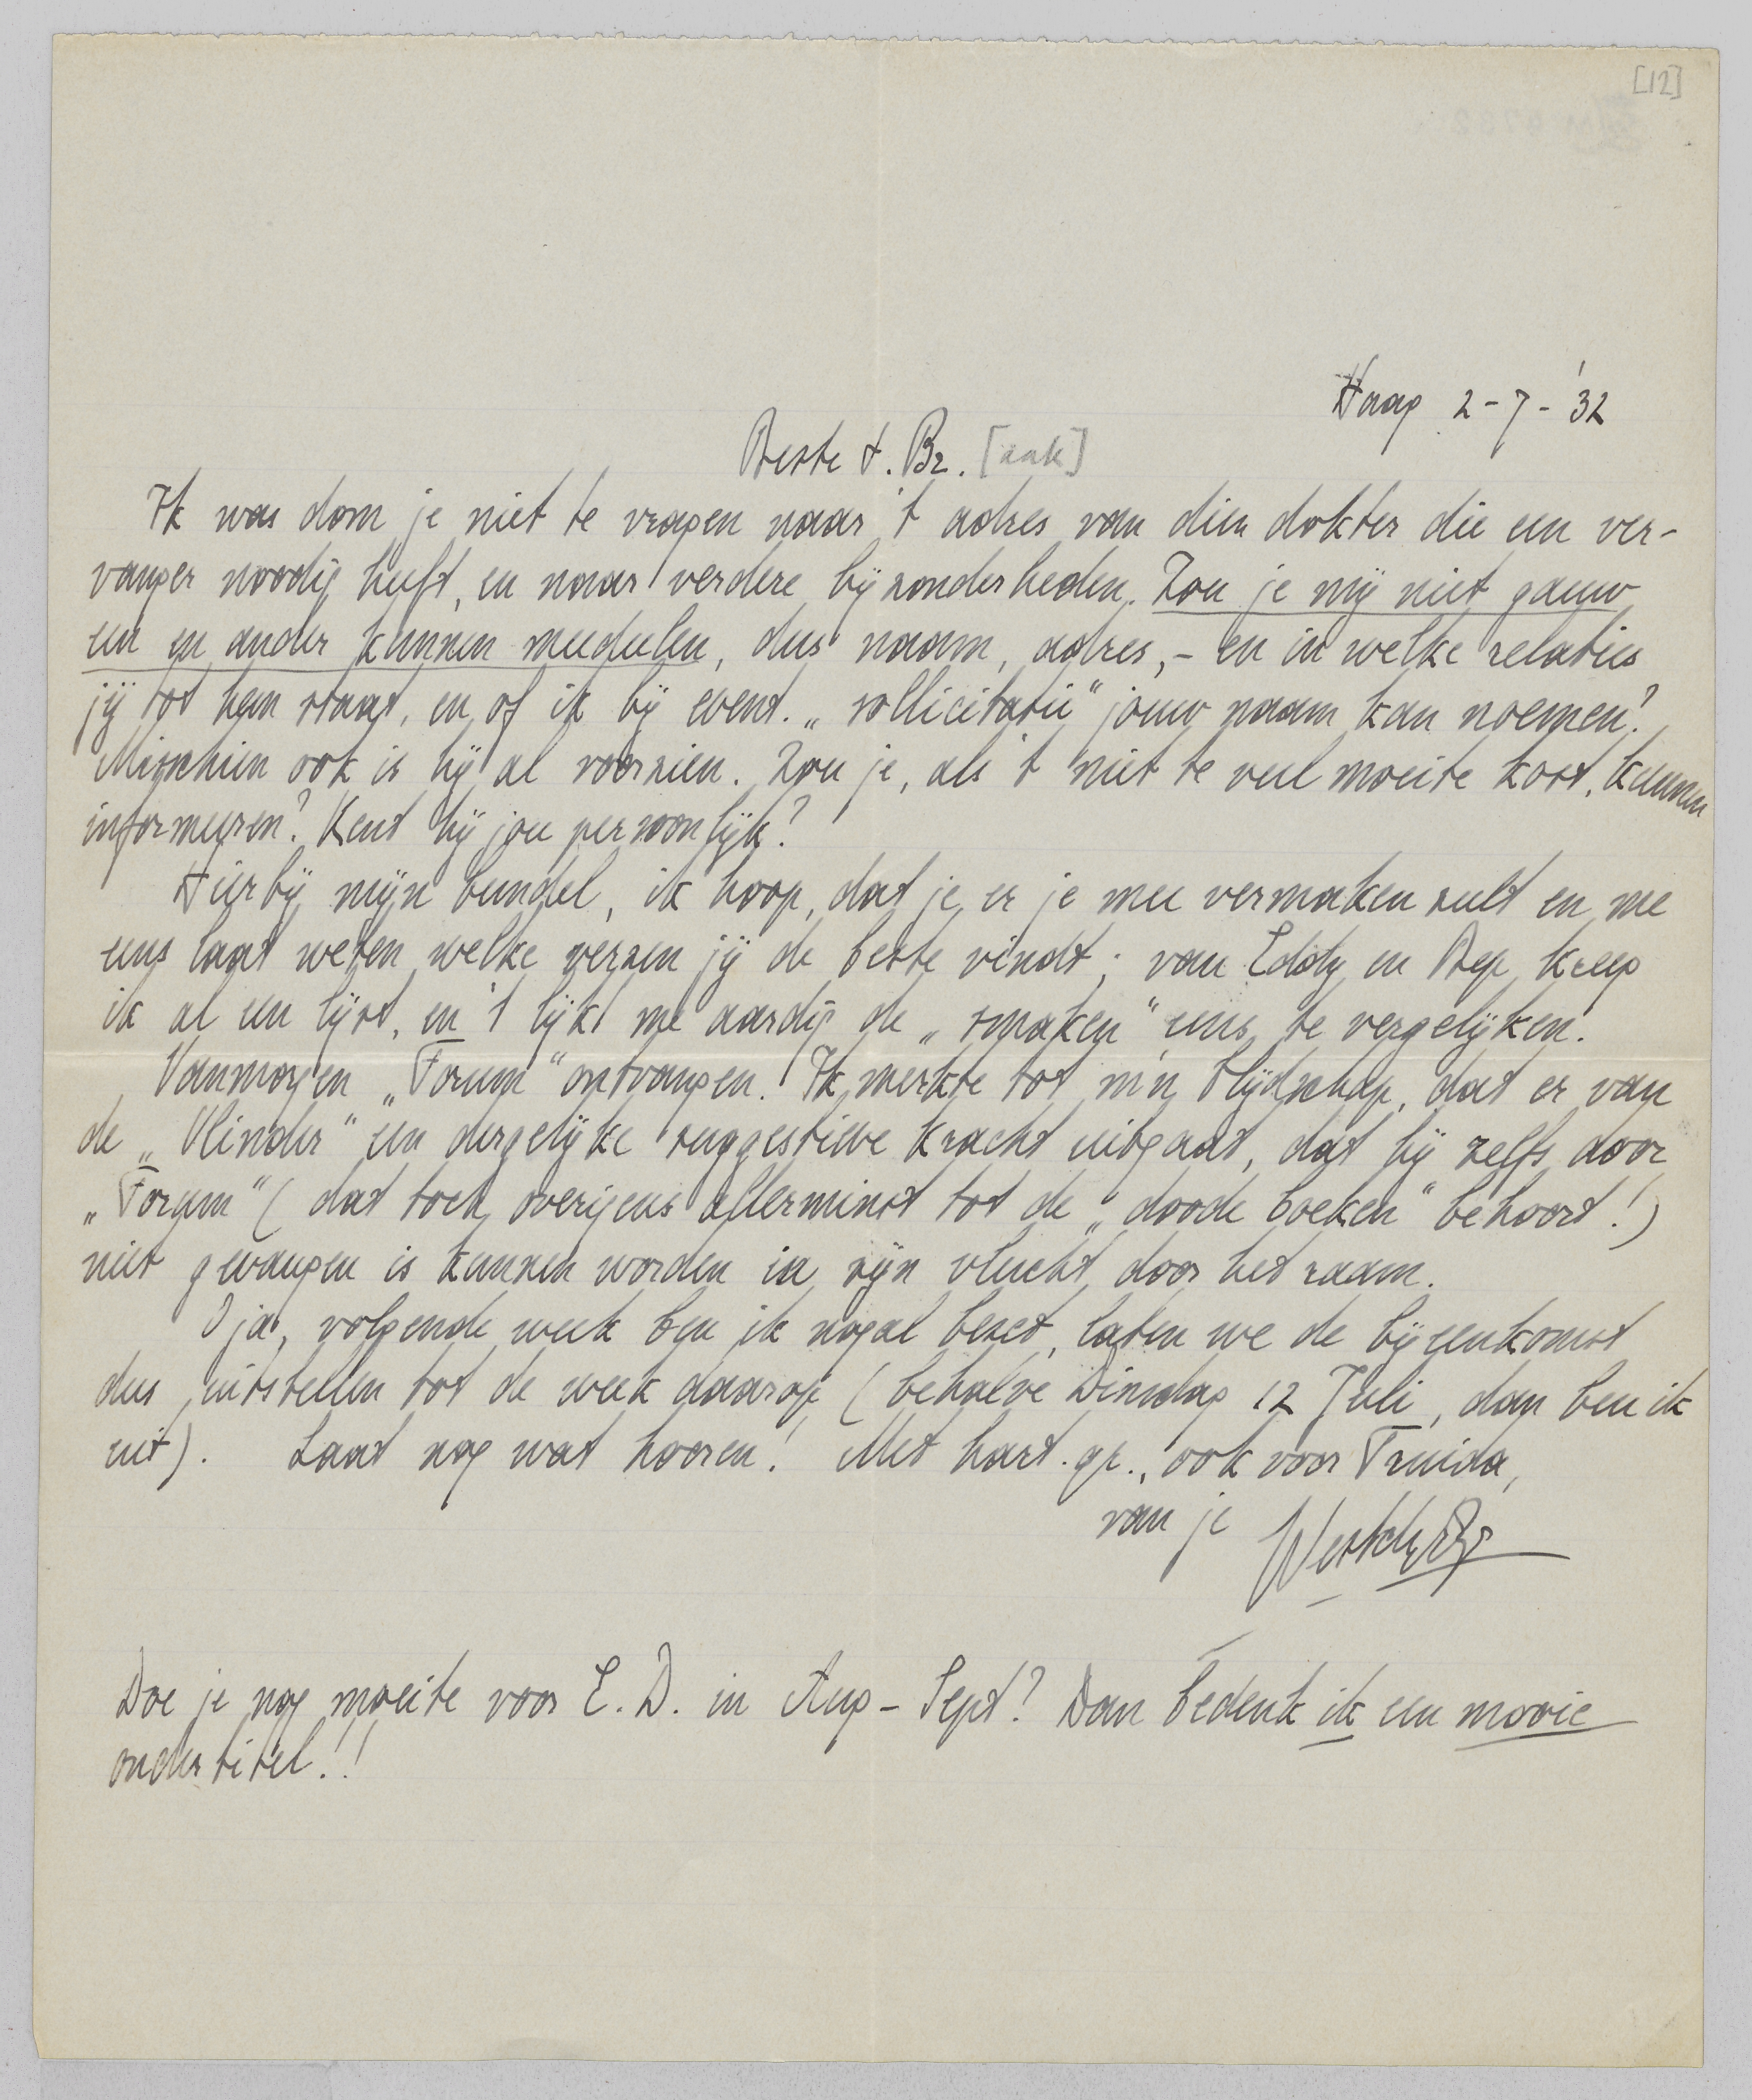 [12]
Haag 2-7-'32
Beste t. Br. [aak]
Ik was dom je niet te vragen naar 't adres van dien dokter die een ver-
vanger noodig heeft, en naar verdere bijzonderheden. Zou je mij niet gauw
een en ander kunnen meedeelen, dus naam, adres, - en in welke relaties
jij tot hem staat, en of ik bij event. „sollicitatie" jouw naam kan noemen?
Misschien ook is hij al voorzien. Zou je, als 't niet te veel moeite kost, kunnen
informeeren? Kent hij jou persoonlijk?
Hierbij mijn bundel, ik hoop, dat je er je mee vermaken zult en me
eens laat weten welke verzen jij de beste vindt; van Eddy en Bep kreeg
ik al een lijst, en 't lijkt me aardig de „smaken" eens te vergelijken.
Vanmorgen „Forum" ontvangen. Ik merkte tot m'n blijdschap, dat er van
de „Vlinder" een dergelijke suggestieve kracht uitgaat, dat hij zelfs door
„Forum" (dat toch overigens allerminst tot de „doode boeken" behoort!)
niet gevangen is kunnen worden in zijn vlucht door het raam.
O ja, volgende week ben ik nogal bezet, laten we de bijeenkomst
dus uitstellen tot de week daarop (behalve Dinsdag 12 Juli, dan ben ik
uit). Laat nog wat hooren! Met hart. gr., ook voor Truida,
van je Vestdijk
Doe je nog moeite voor E. D. in Aug - Sept? Dan bedenk ik een mooie
ondertitel!!